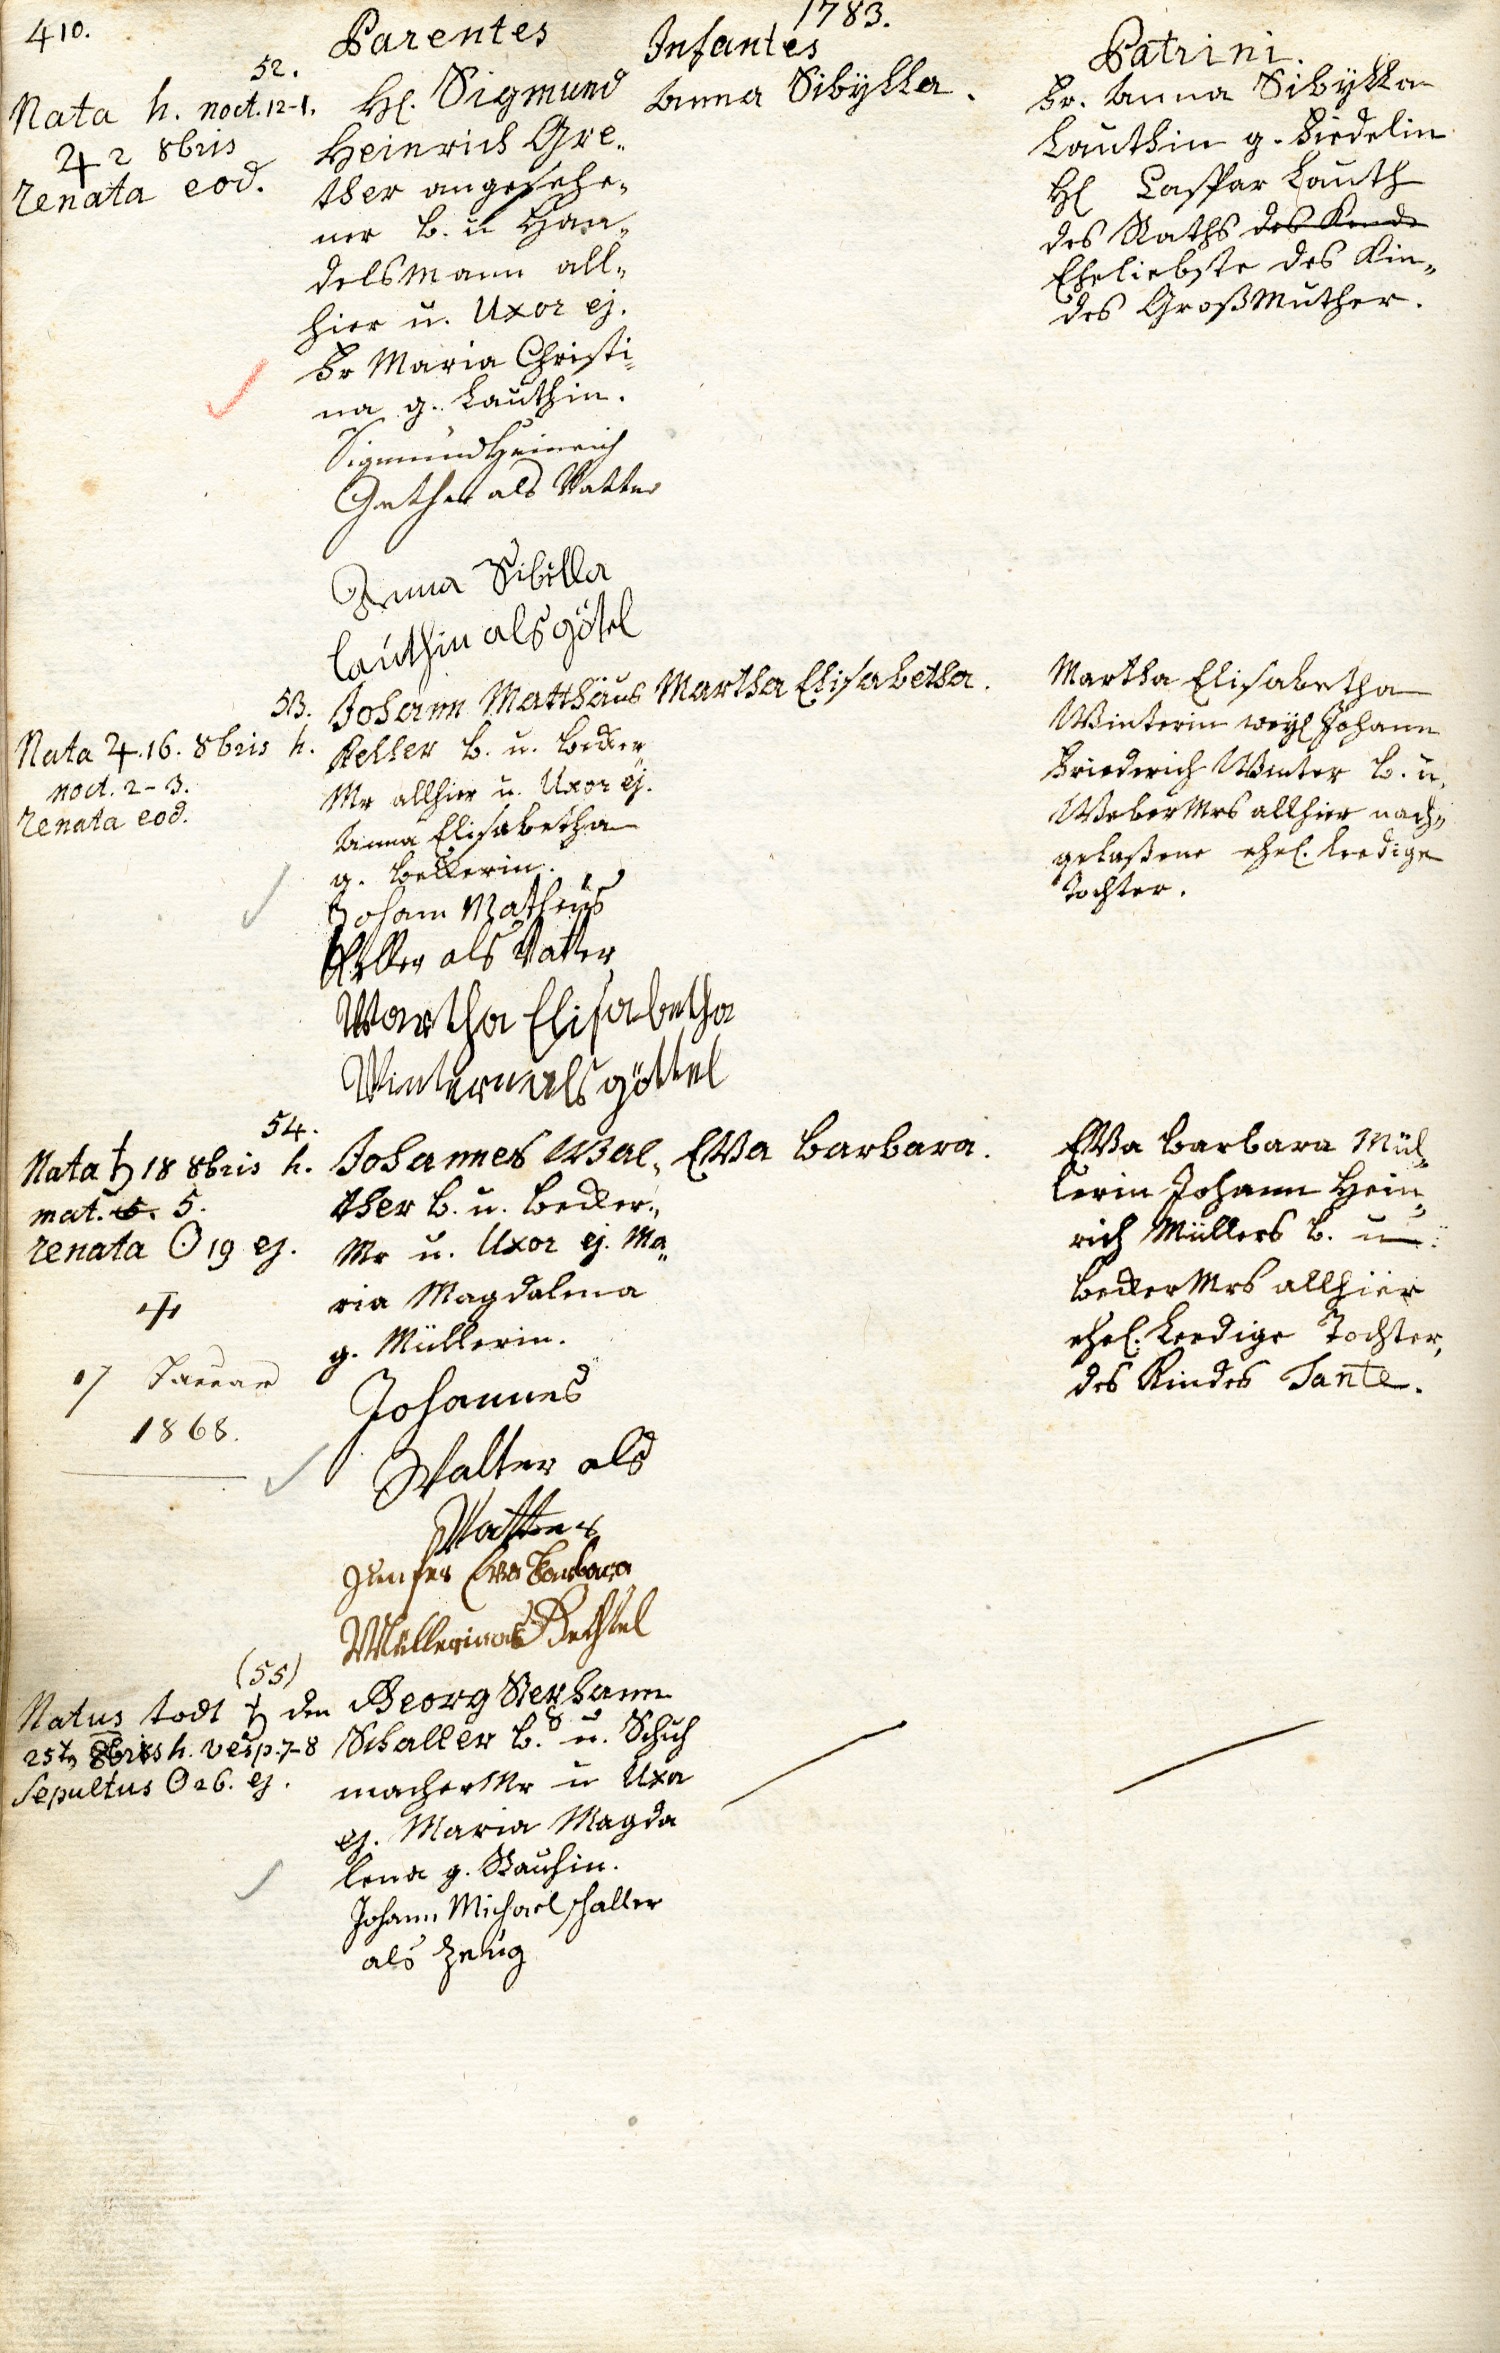 410.
1783.
Parentes
Infantes
Patrini.
52.
Nata h. noct. 12-1.
♃ 2 8bris
renata eod.
H. Sigmund
Heinrich Gre„
ther angesehe„
ner b. u Han„
delsmann all„
hier u. Uxor ej.
Fr Maria Christi„
na g. Lauthin.
Sigmund Heinrich
Grether als Vatter
Anna Sibilla
lauthin als götel
Anna Sibÿlla.
Fr. Anna Sibÿlla
Lauthin g. Fiedelin
H Caspar Lauth
des Raths des Kinds
Eheliebste des Kin„
des Großmuther.
53.
Nata ♃. 16. 8bris h.
noct. 2-3.
renata eod.
Johann Matthäus
Keller b. u. Becker
Mr allhier u. Uxor ej.
Anna Elisabetha
g. Beckerin.
Johann Matheüs
Keller als Vatter
Martha Elisabetha
Winterin als göttel
Martha Elisabetha.
Martha Elisabetha
Winterin weyl Johann
Friederich Winter b. u.
Weber Mrs allhier nach„
gelaßene ehel. leedige
Tochter.
54.
Nata ♄ 18 8bris h.
mat. 5.
renata ☉ 19 ej.
17 Januar
1868.
Johannes Wal„
ther b. u. Becker„
Mr u. Uxor ej. Ma„
ria Magdalena
g. Müllerin.
Johannes
Walter als
Vatter
Junfer Eva Barbara
Müllerin als Gethel
EVa Barbara.
EVa Barbara Mül„
lerin Johann Hein„
rich Müllers b. u.
Becker Mrs allhier
ehel. leedige Tochter,
des Kindes Tante.
(55)
Natus todt ♄ den
25ten 8bris h. vesp. 7-8
Sepultus ☉ 26. ej.
Georg
Schaller b. u. Schuh
macher Mr u Uxor
ej. Maria Magda
lena g.
Johann Michael schaller
als Zeug